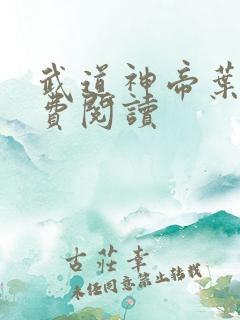 武道神帝葉
費閱讀
古莊幸
未經同意禁止轉載